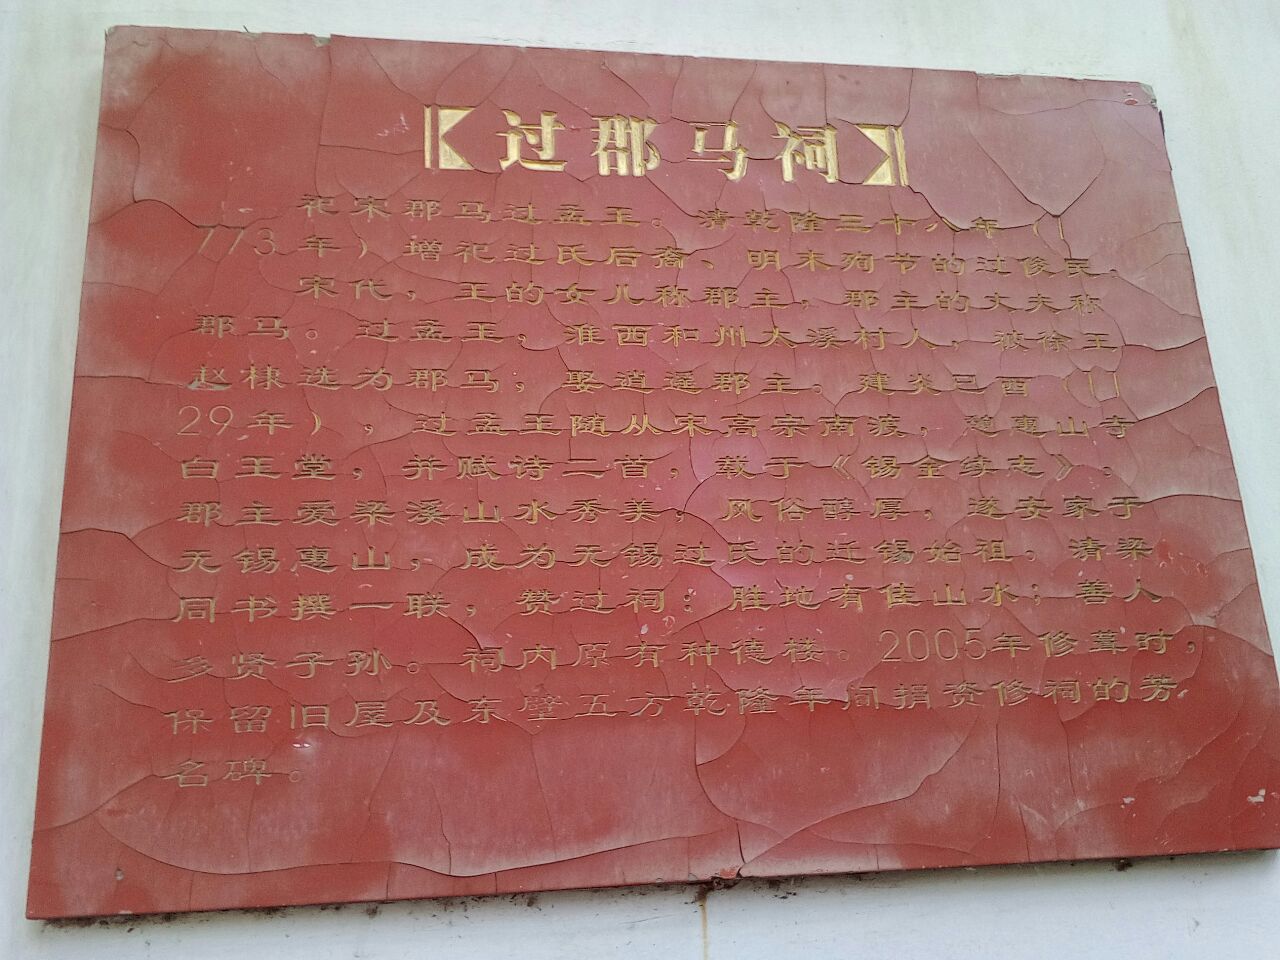 【过郡马祠】
祀宋郡马过孟玉。清乾隆三十八年（1
773年）增祀过氏后裔、明末殉节的过俊民。
宋代，王的女儿称郡主，郡主的丈夫称
郡马。过孟玉，淮西和州大溪村人，被徐王
赵棣选为郡马，娶逍遥郡主。建炎已酉（11
29年），过孟玉随从宋高宗南渡，憩惠山寺
白玉堂，并赋诗二首，载于《锡金续志》。
郡主爱梁溪山水秀美，风俗醇厚，遂安家于
无锡惠山，成为无锡过氏的迁锡始祖，清梁
同书撰一联，赞过祠：胜地有佳山水；善人
多贤子孙。祠内原有种德楼。2005年修葺时，
保留旧屋及东壁五方乾隆年间捐资修祠的芳
名碑。